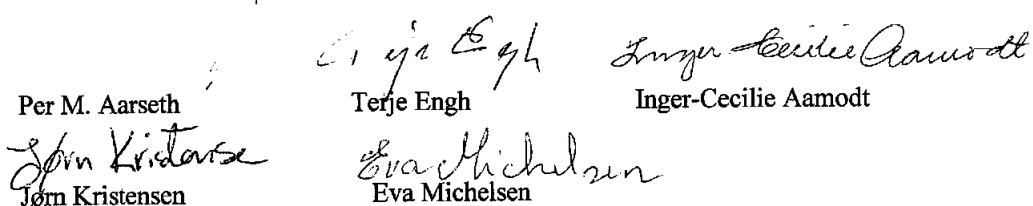 Terje Engh Inger-Cecilie Aamodt
Per M. Aarseth Terje Engh Inger-Cecilie Aamodt
Jørn Kristensen Eva Michelsen
Jørn Kristensen Eva Michelsen